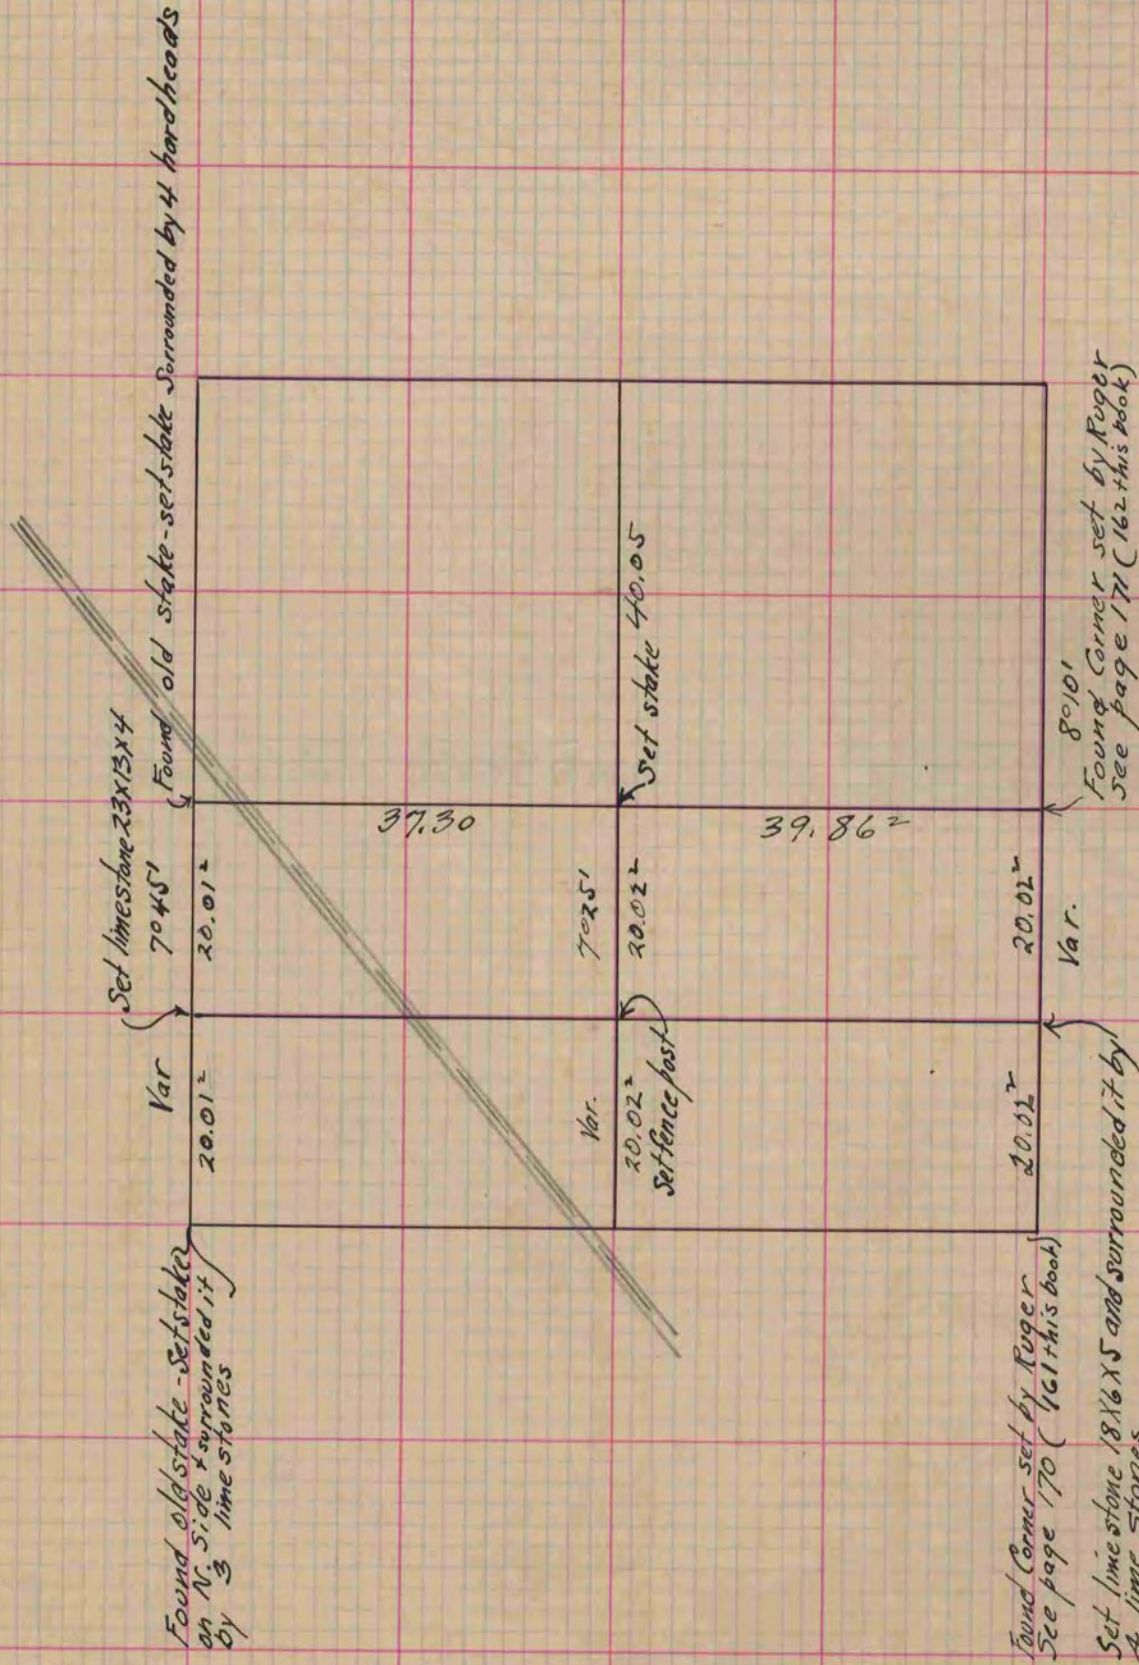 Found old stake - set stake surrounded by 4 hardheads
Set limestone 23x13x4
Var 7°45'
20.01² 20.01²
Found old stake - Set stake
on N. Side & surrounded it
by 3 limestones
37.30
Var. 7°25'
20.02² 20.02²
Set fence post
Set stake 40.05
39.86²
20.02² 20.02²
Var. 8°10'
Found Corner set by Ruger
See page 171 (162 this book)
Found Corner set by Ruger
See page 170 (161 this book)
Set limestone 18x6x5 and surrounded it by
4 lime stones